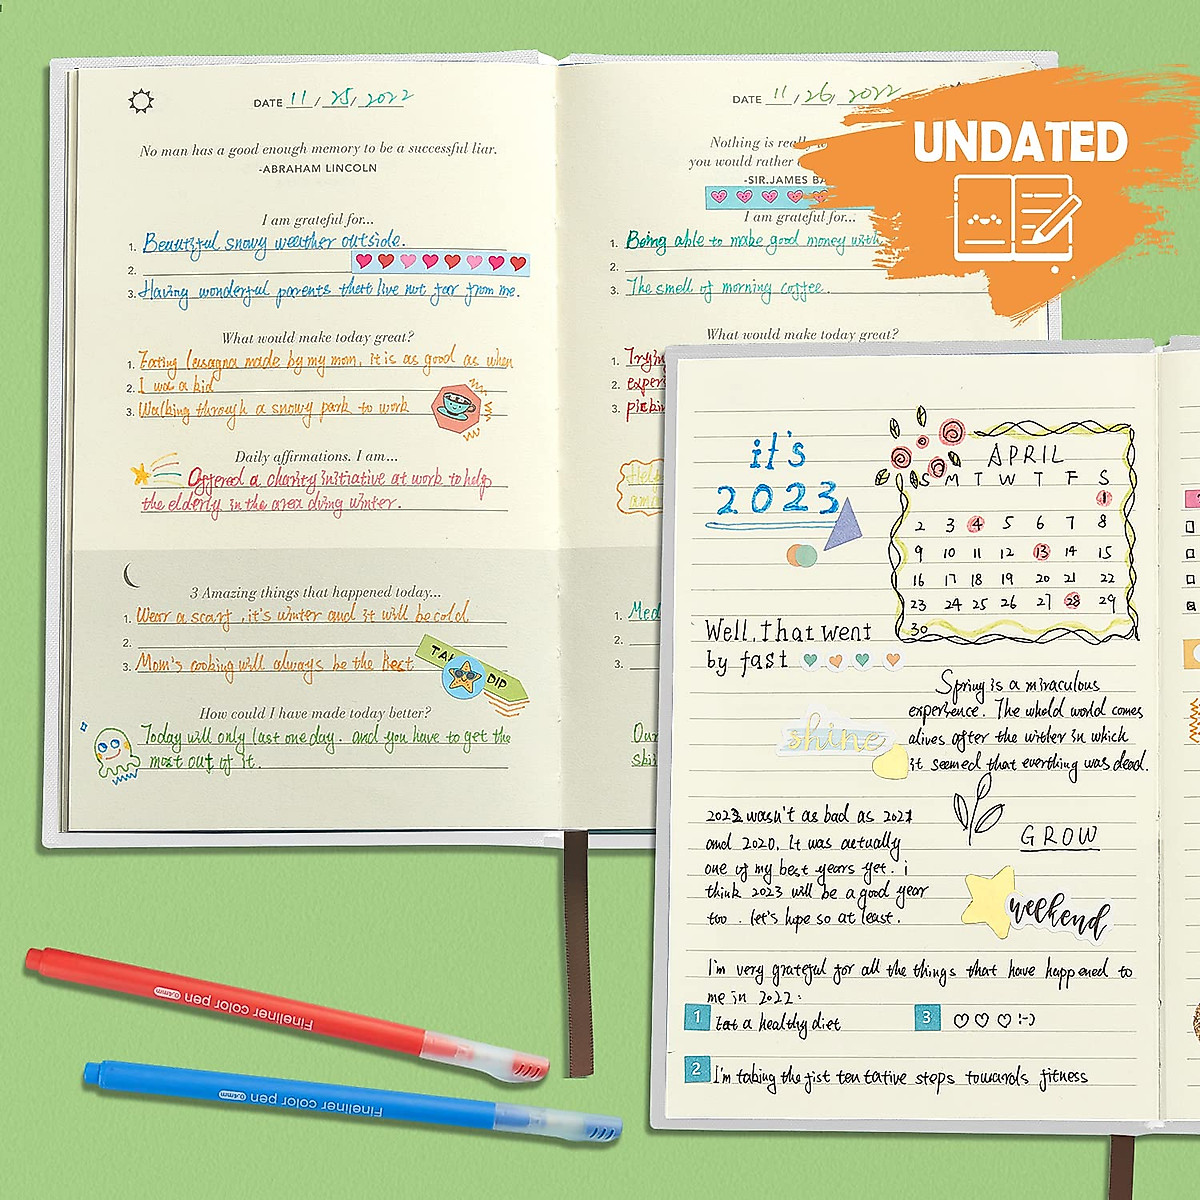 DATE 11 / 25 / 2022
No man has a good enough memory to be a successful liar.
-ABRAHAM LINCOLN
I am grateful for...
1. Beautiful snowy weather outside.
2.
3. Having wonderful parents that live not far from me.
What would make today great?
1. Eating lasagna made by my mom, it is as good as when
2. I was a kid
3. Walking through a snowy park to work
Daily affirmations. I am...
Offered a charity initiative at work to help
the elderly in the area diving winter.
3 Amazing things that happened today...
1. Wear a scarf, it's winter and it will be cold
2.
3. Mom's cooking will always be the Best
DIP
How could I have made today better?
Today will only last one day. and you have to get the
most out of it.
DATE 11 / 26 / 2022
Nothing is
you would rather
-SIR.JAMES
I am grateful for...
1. Being able to make good money with
2.
3. The smell of morning coffee.
What would make today great?
1.
2.
3.
1.
2.
3.
UNDATED
it's
2023
APRIL
S M T W T F S
1
2 3 4 5 6 7 8
9 10 11 12 13 14 15
16 17 18 19 20 21 22
23 24 25 26 27 28 29
30
Well, that went
by fast
Spring is a miraculous
experience. The whold world comes
alives after the witler in which
it seemed that everthing was dead.
shine
2023 wasn't as bad as 2021
and 2020. It was actually
one of my best years yet. i
think 2023 will be a good year
too. let's hope so at least.
GROW
weekend
I'm very grateful for all the things that have happened to
me in 2022:
1 Eat a healthy diet
3 ♡ ♡ ♡ :-)
2 I'm taking the fist ten tative steps towards fitness
Fineliner color pen 0.4mm
Fineliner color pen 0.4mm